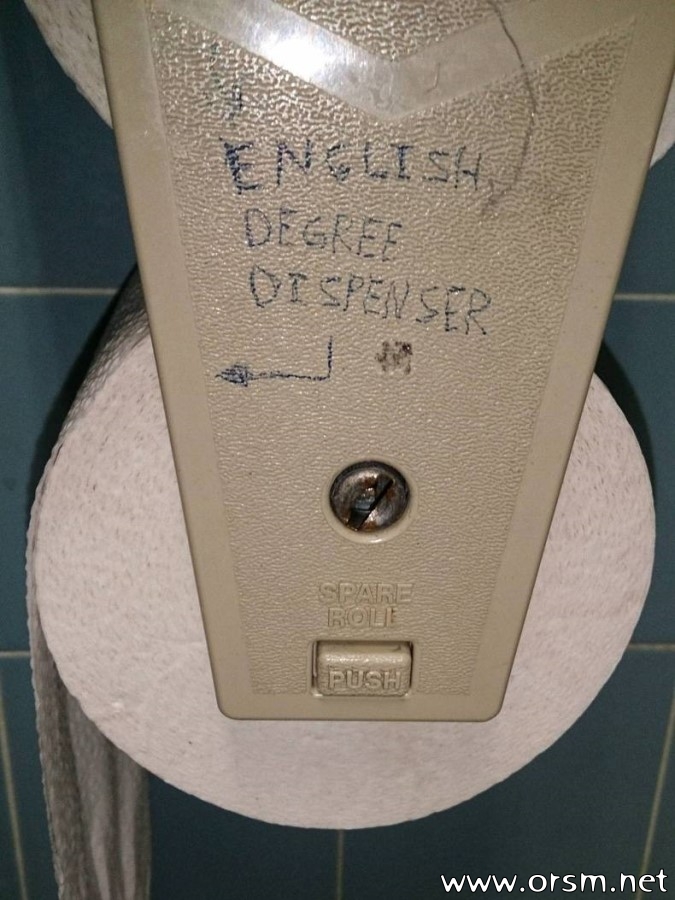 ENGLISH
DEGREE
DISPENSER
SPARE
ROLL
PUSH
www.orsm.net